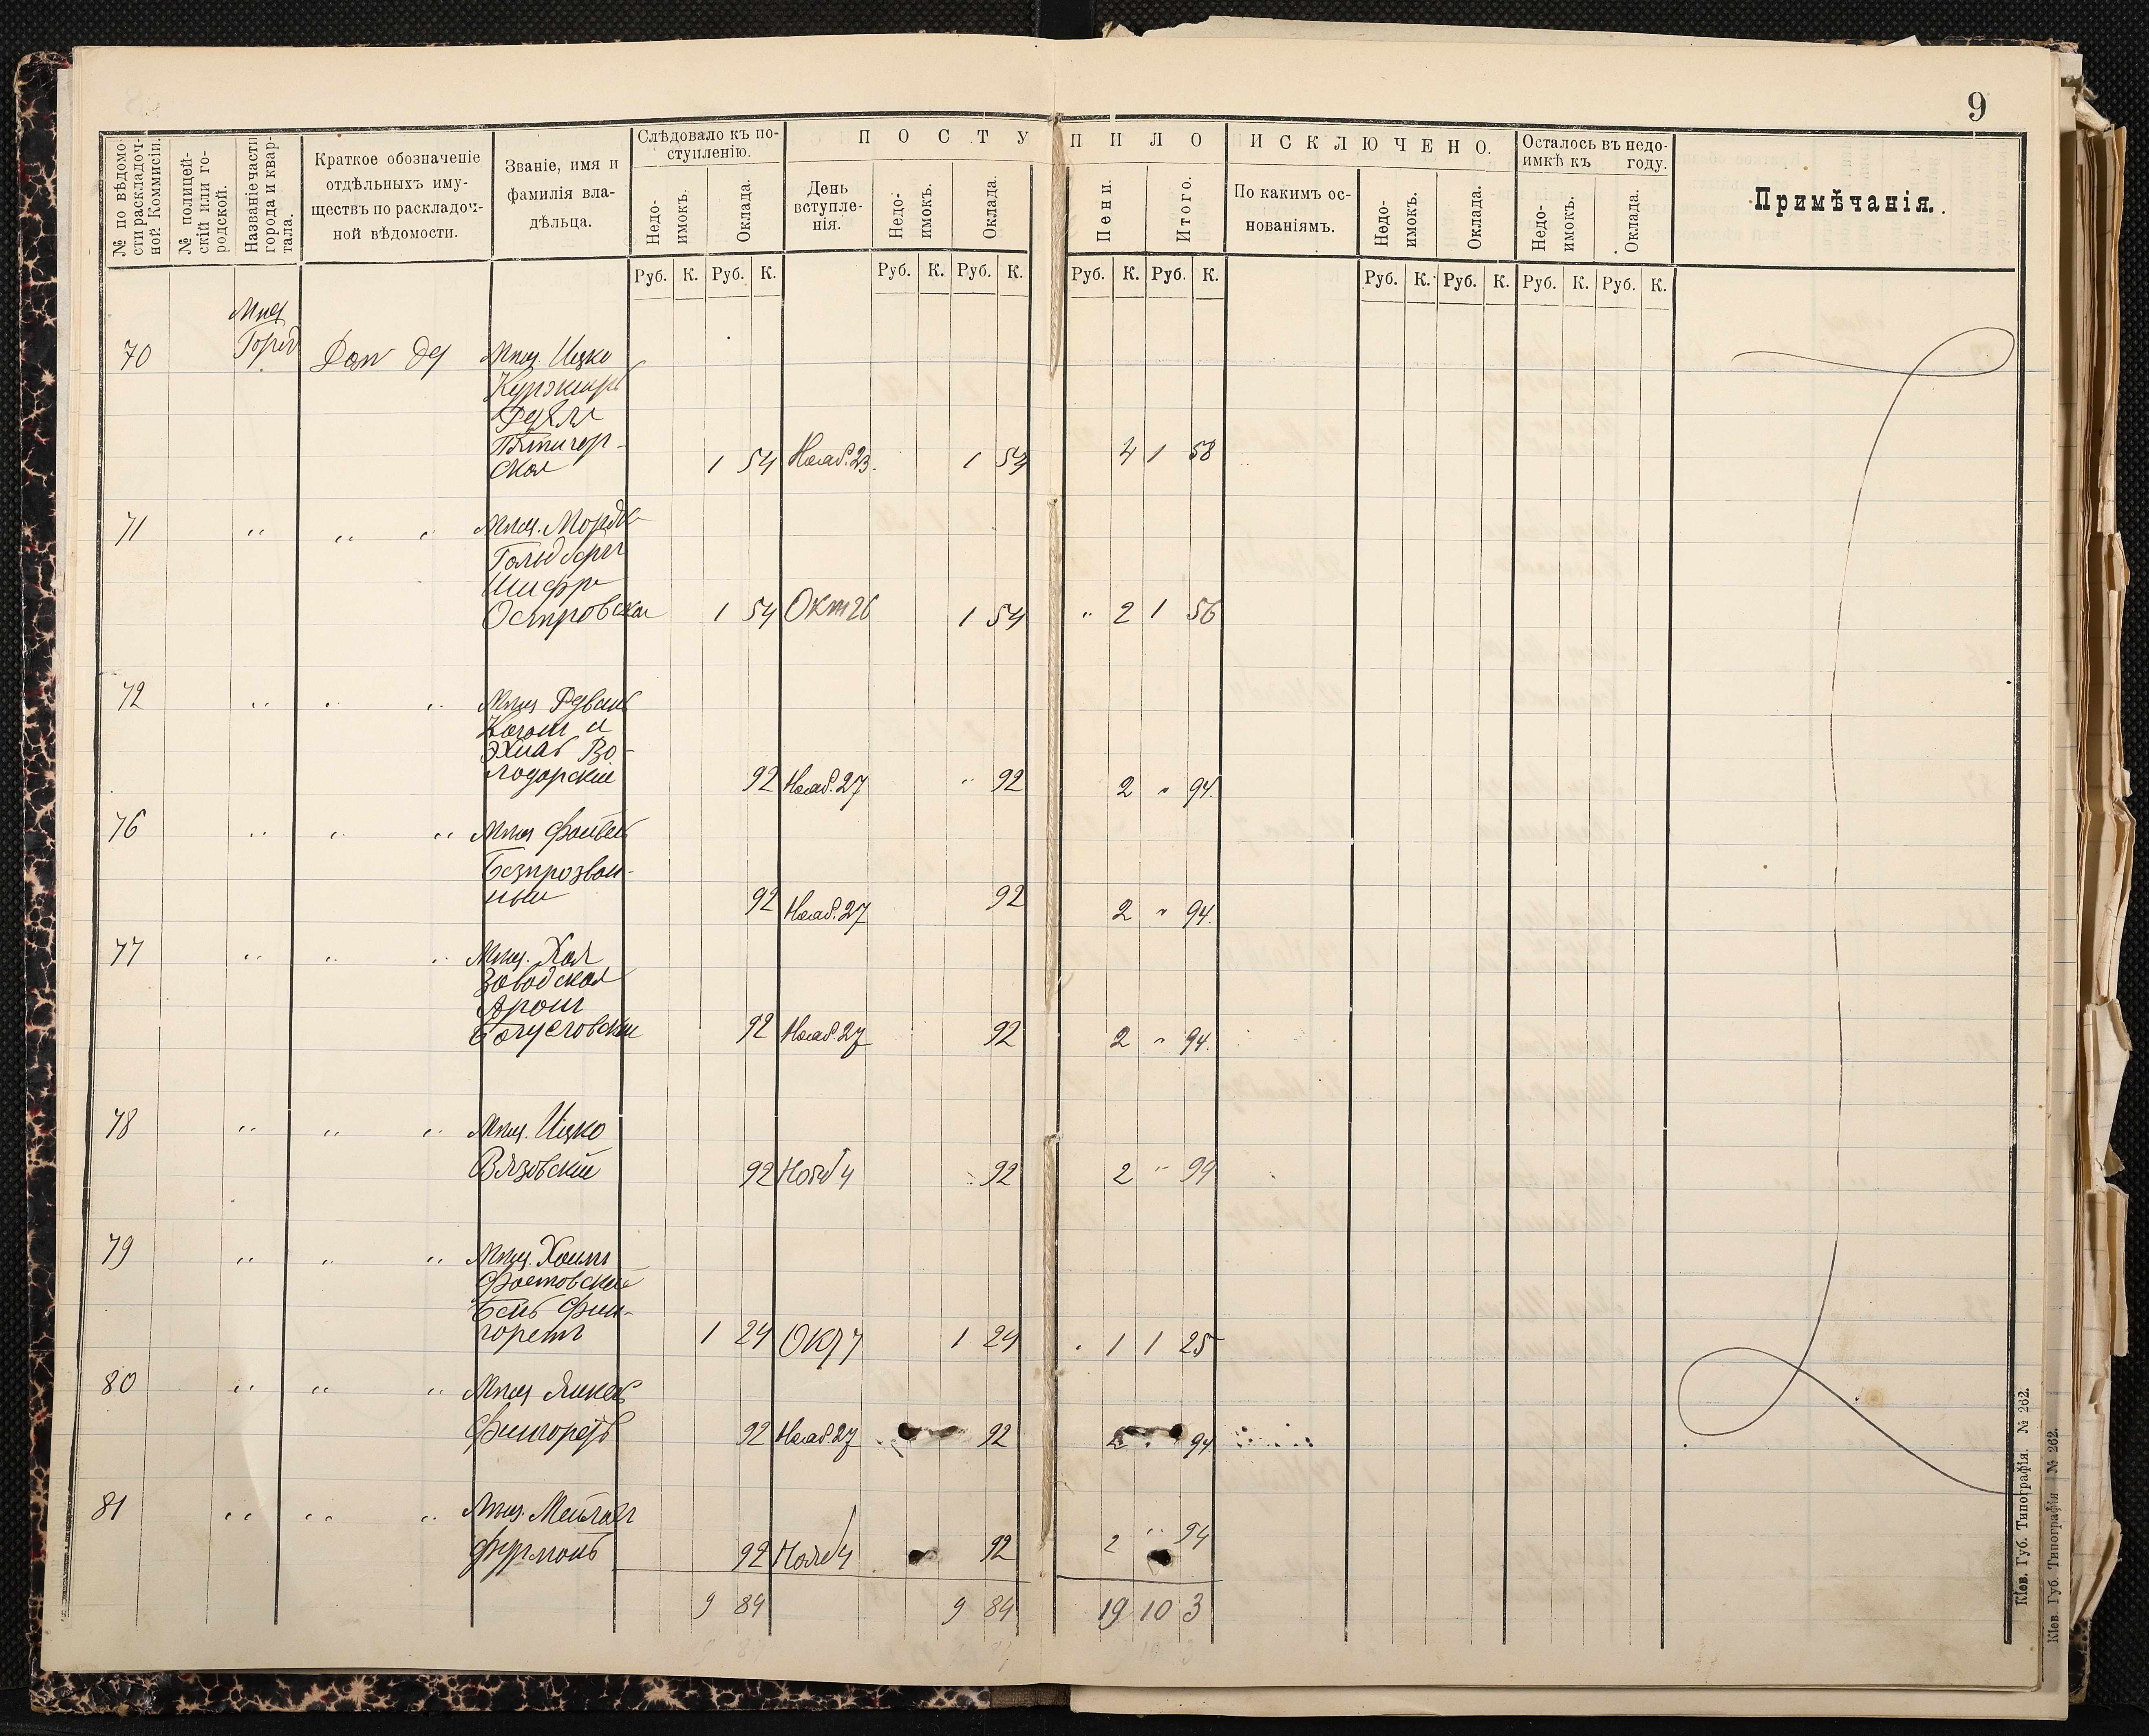 9
№ по вѣдомости раскладочной Коммисіи.
№ полицейскій или городской.
Названіе части города и квартала.
Краткое обозначеніе
отдѣльныхъ иму-
ществъ по раскладоч-
ной вѣдомости.
Званіе, имя и
фамилія вла-
дѣльца.
Слѣдовало къ по-
ступленію.
П О С Т У П И Л О
И С К Л Ю Ч Е Н О.
Осталось въ недо-
имкѣ къ году.
Примѣчанія.
Недо-
имокъ.
Оклада.
День
вступле-
нія.
Недо-
имокъ.
Оклада.
Пени.
Итого.
По какимъ ос-
нованіямъ.
Недо-
имокъ.
Оклада.
Недо-
имокъ.
Оклада.
Руб. К. Руб. К. Руб. К. Руб. К. Руб. К. Руб. К. Руб. К. Руб. К. Руб. К. Руб. К.
70 Город Мѣщ. Ицко
ская 1 54 Нояб. 23 1 54 4 1 58
71 " " " Мѣщ.
Островская 1 54 Окт 26 1 54 " 2 1 56
72 " " " Мѣщ
Коган и
Во-
лодарскій 92 Нояб. 27 " 92 2 " 94.
76 " " " Мѣщ
Безпрозван-
ный 92 Нояб. 27 92 2 " 94.
77 " " " Мѣщ. Хая
Заводская
Арон
Богуславскій 92 Нояб. 27 92 2 " 94.
78 " " " Мѣщ. Ицко
Вязовскій 92 Нояб 4 92 2 " 94
79 " " " Мѣщ. Хаим
Фастовскій
1 24 Окт 7 1 24 " 1 1 25
80 " " " Мѣщ
92 Нояб. 27 92 2 " 94
81 " " " Мѣщ.
Фурманъ 92 Нояб 4 92 2 " 94
9 84 9 84 19 10 3
Кіев. Губ. Типографія. № 262.
Кіев. Губ. Типографія № 262.